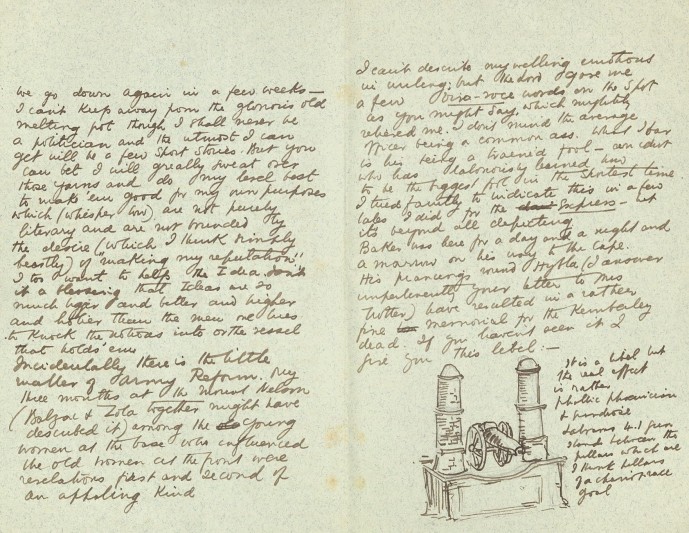 we go down again in a few weeks—
I can't keep away from the glorious old
melting pot though I shall never be
a politician and the utmost I can
get will be a few short stories. But you
can bet I will greatly sweat over
those yarns and do my level best
to make em good for my own purposes
which (whisper low) are not purely
literary and are not bounded by
the desire (which I think simply
beastly) of making my reputation"
I too want to help the Idea.
it a blessing that Ideas are so
much bigger and better and higher
and holier than the men one uses
to knock the notions into or the vessel
that holds 'em
Incidentally there is the little
matter of Army Reform. My
three months at the Mount Nelson
(Balzac & Zola together might have
described it) among the young
women at the base who influenced
the old women at the front were
revelations first and second of
an appaling kind
I can't describe my welling emotions
in writing; but the Lord gave me
a few viva-voce words on the spot
as you might say, which mightily
relieved me. I don't mind the average
officer being a common ass. What I bar
is his being a trained fool — an idiot
who has laboriously learned how
to be the biggest fool in the shortest time.
I tried faintly to indicate this in a few
tales I did for the Express — but
its beyond all depicting
Baker was here for a day and a night and
a morrow on his way to the Cape.
His prancings round Hybla (I answer
impertinently your letter to Mrs
Trotter) have resulted in a rather
fine memorial for the Kemberley
dead. If you haven't seen it I
give you this label:—
It is a label but
the real effect
is rather
phallic phoenician
&
4.1 gun
stands between the
pillars which are
I think pillars
of a chariot race
goal